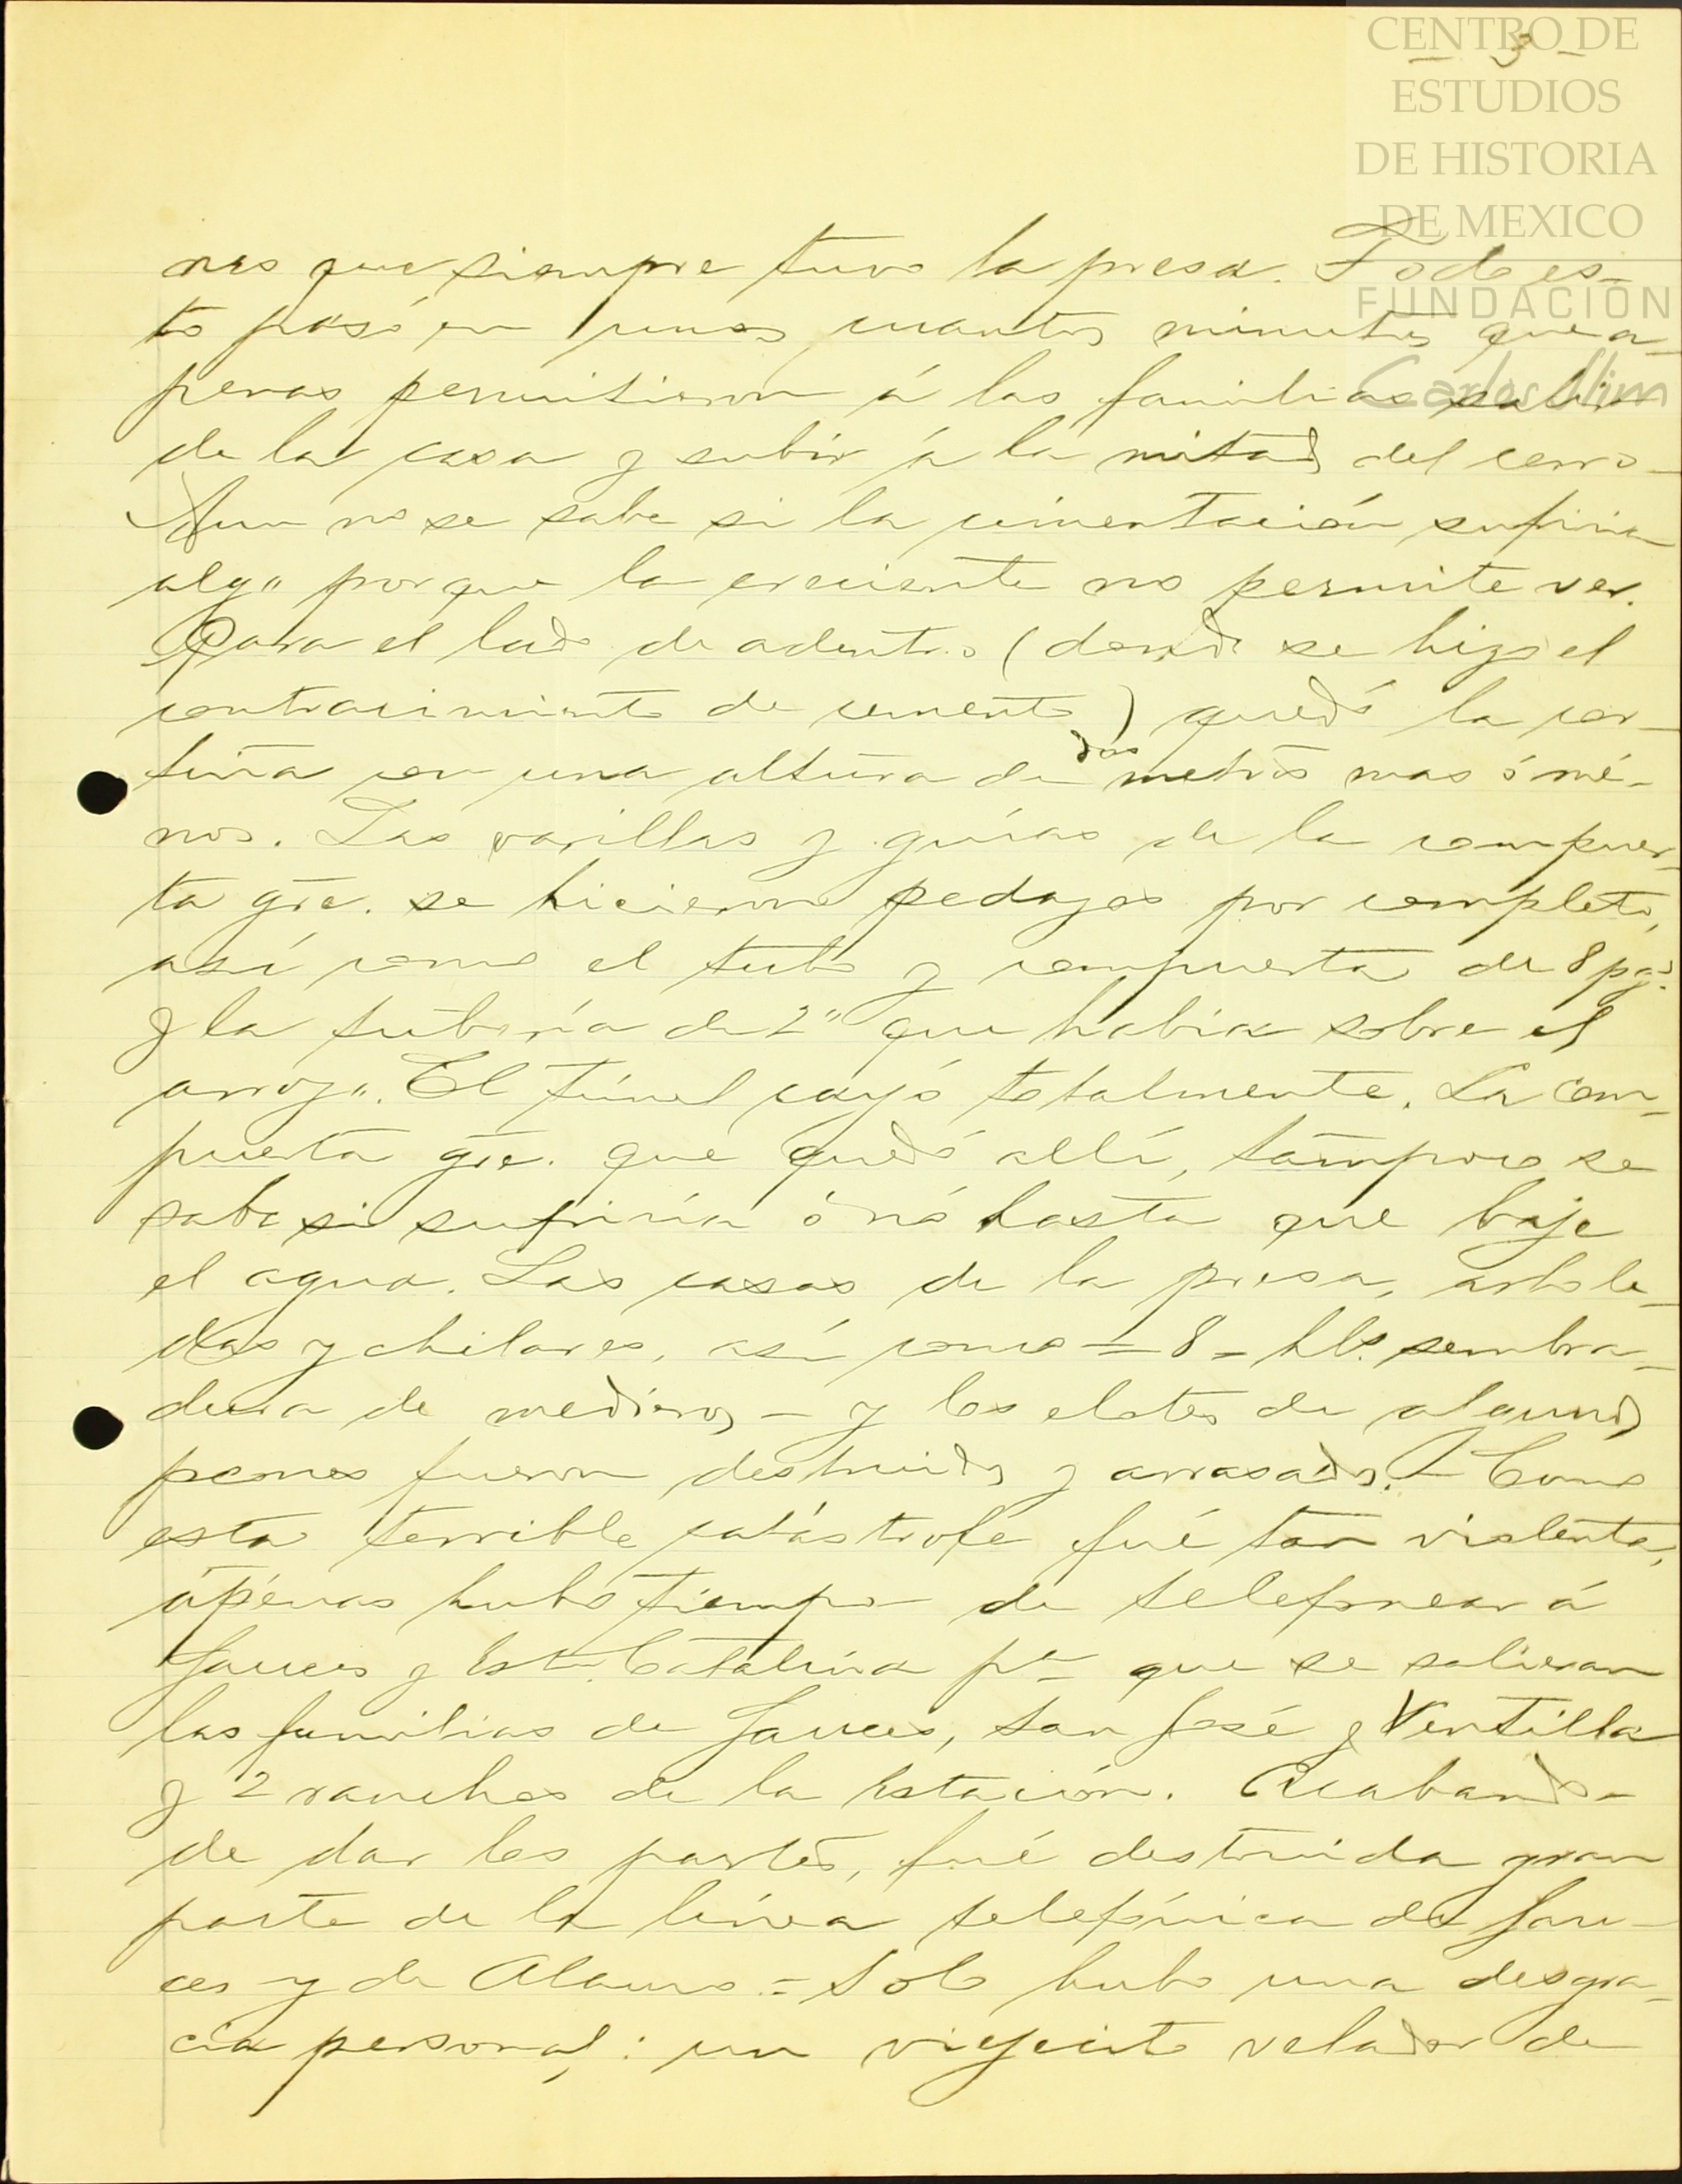 CENTRO DE
ESTUDIOS
DE HISTORIA
DE MEXICO
FUNDACIÓN
Carlos Slim
— 3 —
nes que siempre tuvo la presa. Todo es-
to pasó en unos cuantos minutos que a-
penas permitieron á las familias salir
de la casa y subir á la mitad del cerro—
Aun no se sabe si la cimentación sufriria
algo porque la creciente no permite ver.
Para el lado de adentro (donde se hizo el
contracimiento de cemento) quedó la cor-
tina con una altura de dos metros mas ó mé-
nos. Las varillas y guías de la compuer-
ta gde. se hicieron pedazos por completo,
así como el tubo y compuerta de 8 pgs.
y la tubería de 2" que habia sobre el
arroyo. El túnel cayó totalmente. La com-
puerta gde. que quedó allí, tampoco se
sabe si sufriría ó nó hasta que baje
el agua. Las casas de la presa, arbole-
das y chilares, así como = 8 = hls. sembra-
dura de medieros — y los elotes de algunos
peones fueron destruidos y arrasados. — Como
esta terrible catástrofe fué tan violenta,
apénas hubo tiempo de telefonear á
Sauces y Estn. Catalina pa. que se salieran
las familias de Sauces, San José y Ventilla
y 2 ranchos de la Estación. Acabando—
de dar los partes, fué destruida gran
parte de la línea telefónica de Sau-
ces y de Alamo. = Solo hubo una desgra-
cia personal: un viejecito velador de